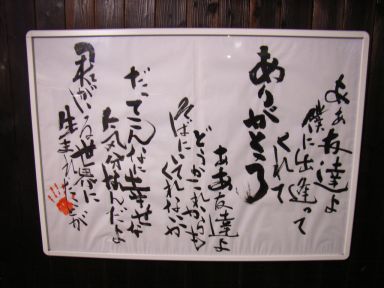 ああ友達よ
僕に出逢って
くれて
ありがとう
ああ友達よ
どうかこれからも
そばにいてくれないか
だってこんなに幸せな
気分なんだよ
君がいる世界に
生まれたことが